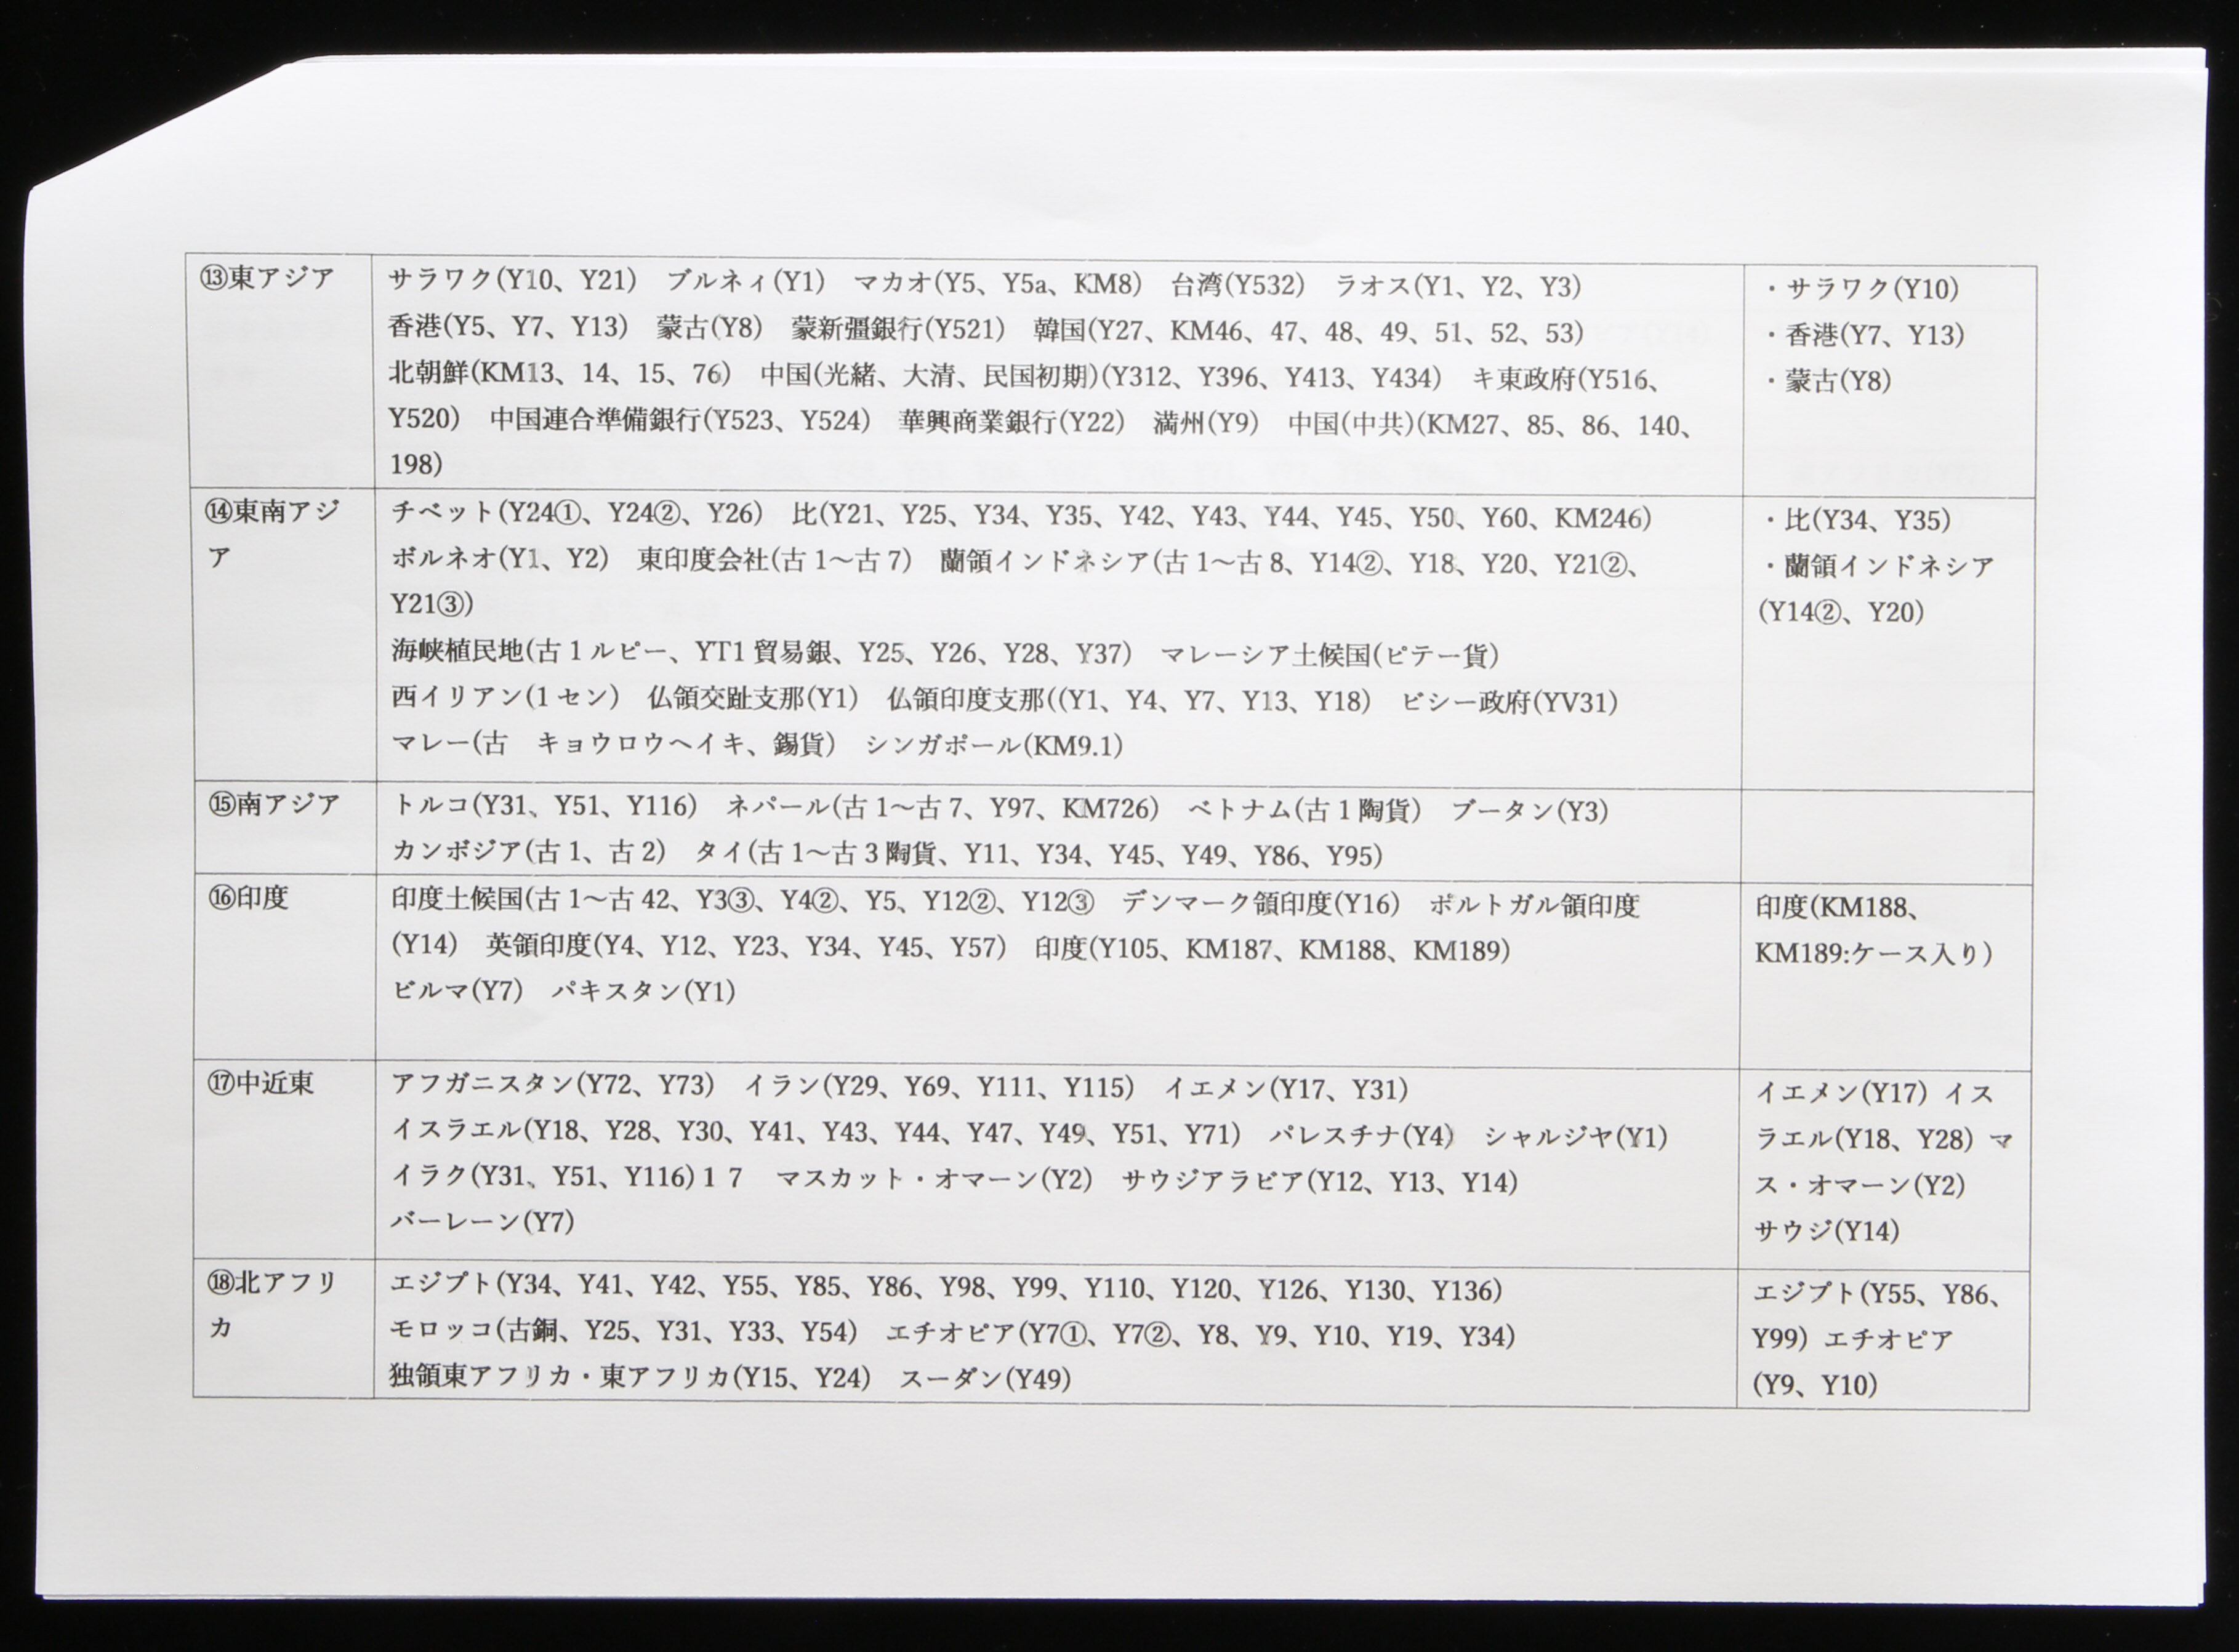 ⑬東アジア
サラワク(Y10、Y21)　ブルネィ(Y1)　マカオ(Y5、Y5a、KM8)　台湾(Y532)　ラオス(Y1、Y2、Y3)
香港(Y5、Y7、Y13)　蒙古(Y8)　蒙新彊銀行(Y521)　韓国(Y27、KM46、47、48、49、51、52、53)
北朝鮮(KM13、14、15、76)　中国(光緒、大清、民国初期)(Y312、Y396、Y413、Y434)　キ東政府(Y516、
Y520)　中国連合準備銀行(Y523、Y524)　華興商業銀行(Y22)　満州(Y9)　中国(中共)(KM27、85、86、140、
198)
・サラワク(Y10)
・香港(Y7、Y13)
・蒙古(Y8)
⑭東南アジ
ア
チベット(Y24①、Y24②、Y26)　比(Y21、Y25、Y34、Y35、Y42、Y43、Y44、Y45、Y50、Y60、KM246)
ボルネオ(Y1、Y2)　東印度会社(古1～古7)　蘭領インドネシア(古1～古8、Y14②、Y18、Y20、Y21②、
Y21③)
海峡植民地(古1ルピー、YT1貿易銀、Y25、Y26、Y28、Y37)　マレーシア土候国(ピテー貨)
西イリアン(1セン)　仏領交趾支那(Y1)　仏領印度支那((Y1、Y4、Y7、Y13、Y18)　ビシー政府(YV31)
マレー(古　キョウロウヘイキ、錫貨)　シンガポール(KM9.1)
・比(Y34、Y35)
・蘭領インドネシア
(Y14②、Y20)
⑮南アジア
トルコ(Y31、Y51、Y116)　ネパール(古1～古7、Y97、KM726)　ベトナム(古1陶貨)　ブータン(Y3)
カンボジア(古1、古2)　タイ(古1～古3陶貨、Y11、Y34、Y45、Y49、Y86、Y95)
⑯印度
印度土候国(古1～古42、Y3③、Y4②、Y5、Y12②、Y12③　デンマーク領印度(Y16)　ポルトガル領印度
(Y14)　英領印度(Y4、Y12、Y23、Y34、Y45、Y57)　印度(Y105、KM187、KM188、KM189)
ビルマ(Y7)　パキスタン(Y1)
印度(KM188、
KM189:ケース入り)
⑰中近東
アフガニスタン(Y72、Y73)　イラン(Y29、Y69、Y111、Y115)　イエメン(Y17、Y31)
イスラエル(Y18、Y28、Y30、Y41、Y43、Y44、Y47、Y49、Y51、Y71)　パレスチナ(Y4)　シャルジヤ(Y1)
イラク(Y31、Y51、Y116)１７　マスカット・オマーン(Y2)　サウジアラビア(Y12、Y13、Y14)
バーレーン(Y7)
イエメン(Y17) イス
ラエル(Y18、Y28) マ
ス・オマーン(Y2)
サウジ(Y14)
⑱北アフリ
カ
エジプト(Y34、Y41、Y42、Y55、Y85、Y86、Y98、Y99、Y110、Y120、Y126、Y130、Y136)
モロッコ(古銅、Y25、Y31、Y33、Y54)　エチオピア(Y7①、Y7②、Y8、Y9、Y10、Y19、Y34)
独領東アフリカ・東アフリカ(Y15、Y24)　スーダン(Y49)
エジプト(Y55、Y86、
Y99) エチオピア
(Y9、Y10)